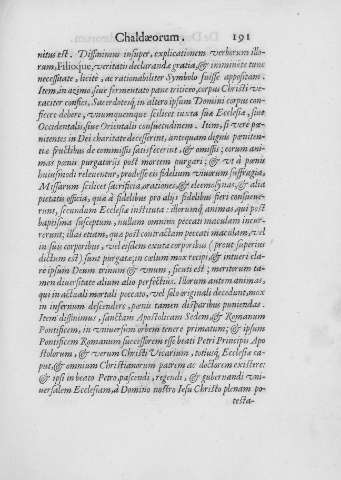 Chaldæorum. 191
nitus est. Diffinimus insuper, explicationem verborum illo-
rum, Filioque, veritatis declarandæ gratia, & imminente tunc
necessitate, licitè, ac rationabiliter Symbolo fuisse appositam.
Item, in azimo, siue fermentato pane triticeo, corpus Christi ve-
raciter confici, Sacerdotesq; in altero ipsum Domini corpus con-
ficere debere, vnumquemque scilicet iuxta suæ Ecclesiæ, siue
Occidentalis, siue Orientalis consuetudinem. Item, si verè pœ-
nitentes in Dei charitate decesserint, antequam dignis pœniten-
tiæ fructibus de commissis satisfecerint, & omissis; eorum ani-
mas pœnis purgatorijs post mortem purgari; & vt à pœnis
huiusmodi releuentur, prodesse eis fidelium viuorum suffragia,
Missarum scilicet sacrificia, orationes, & eleemosynas, & alia
pietatis officia, quæ à fidelibus pro alijs fidelibus fieri consueue-
runt, secundum Ecclesiæ instituta: illorumq́; animas, qui post
baptisma susceptum, nullam omnino peccati maculam incur-
rerunt; illas etiam, quæ post contractam peccati maculam, vel
in suis corporibus, vel eisdem exutæ corporibus (prout superius
dictum est) sunt purgatæ; in cœlum mox recipi, & intueri cla-
rè ipsum Deum trinum & vnum, sicuti est; meritorum ta-
men diuersitate alium alio perfectius. Illorum autem animas,
qui in actuali mortali peccato, vel solo originali decedunt, mox
in infernum descendere, pœnis tamen disparibus puniendas.
Item diffinimus, sanctam Apostolicam Sedem, & Romanum
Pontificem, in vniuersum orbem tenere primatum; & ipsum
Pontificem Romanum successorem esse beati Petri Principis Apo
stolorum, & verum Christi Vicarium, totiusq́; Ecclesiæ ca-
put, & omnium Christianorum patrem ac doctorem existere:
& ipsi in beato Petro, pascendi, regendi, & gubernandi vni-
uersalem Ecclesiam, à Domino nostro Iesu Christo plenam po-
testa-